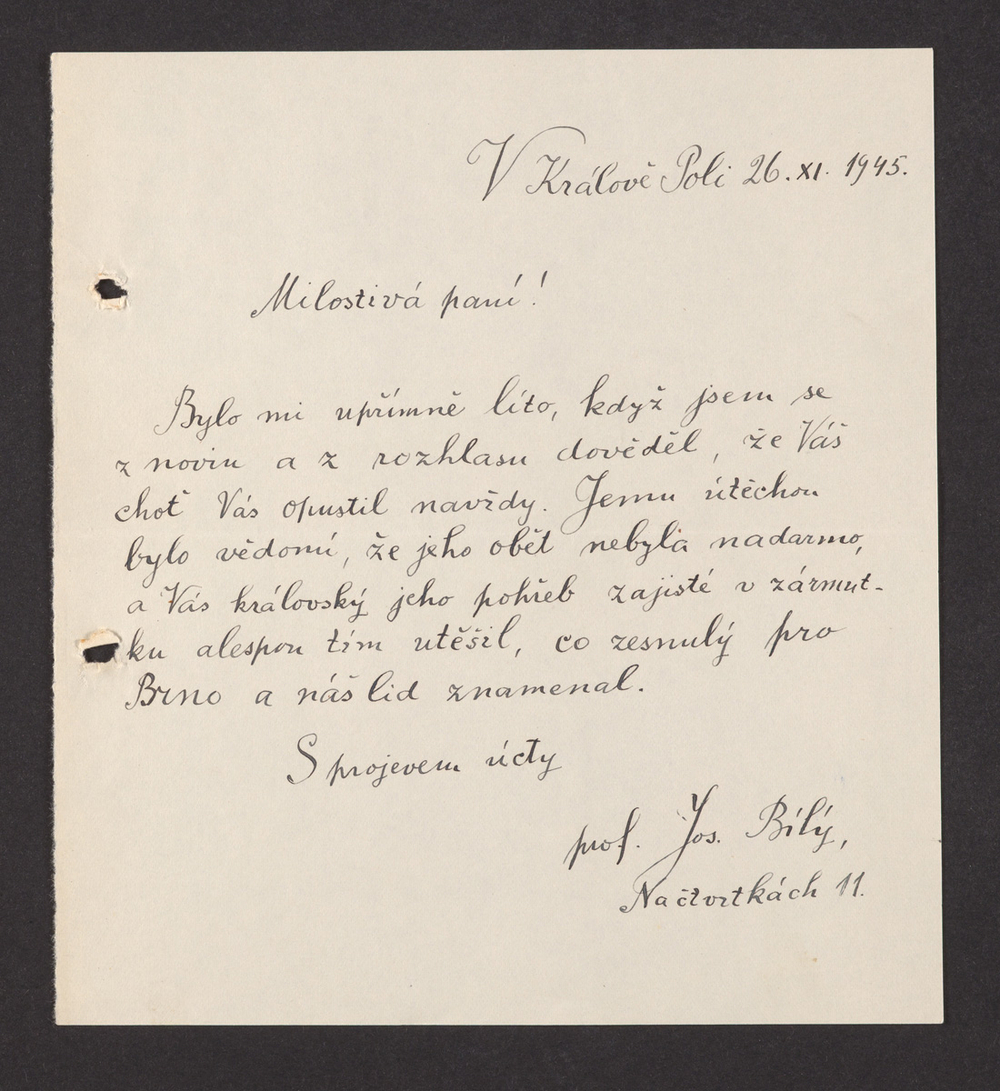 V Králově Poli 26. XI. 1945.
Milostivá paní!
Bylo mi upřímně líto, když jsem se
z novin a z rozhlasu dověděl, že Váš
choť Vás opustil navždy. Jemu útěchou
bylo vědomí, že jeho oběť nebyla nadarmo,
a Vás královský jeho pohřeb zajisté v zármut-
ku alespoň tím utěšil, co zesnulý pro
Brno a náš lid znamenal.
S projevem úcty
prof. Jos. Bílý,
Na čtvrtkách 11.